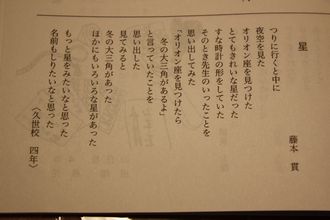 星
藤本 貫
つりに行くと中に
夜空を見た
オリオン座を見つけた
とてもきれいな星だった
すな時計の形をしていた
そのとき先生のいったことを
思い出してみた
「オリオン座を見つけたら
冬の大三角があるよ」
と言っていたことを
思い出した
見てみると
冬の大三角があった
ほかにもいろいろな星があった
もっと星をみたいなと思った
名前もしりたいなと思った
〈久世校 四年〉